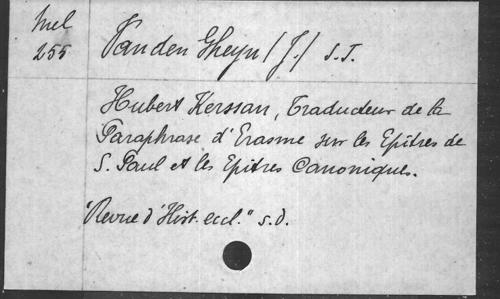 Mel
255
Van den Gheyn (J.) S.J.
Hubert Kerssan, Traducteur de la
Paraphrase d'Erasme sur les Epîtres de
S. Paul et les Epîtres Canoniques.
"Revue d'Hist. eccl." s.d.